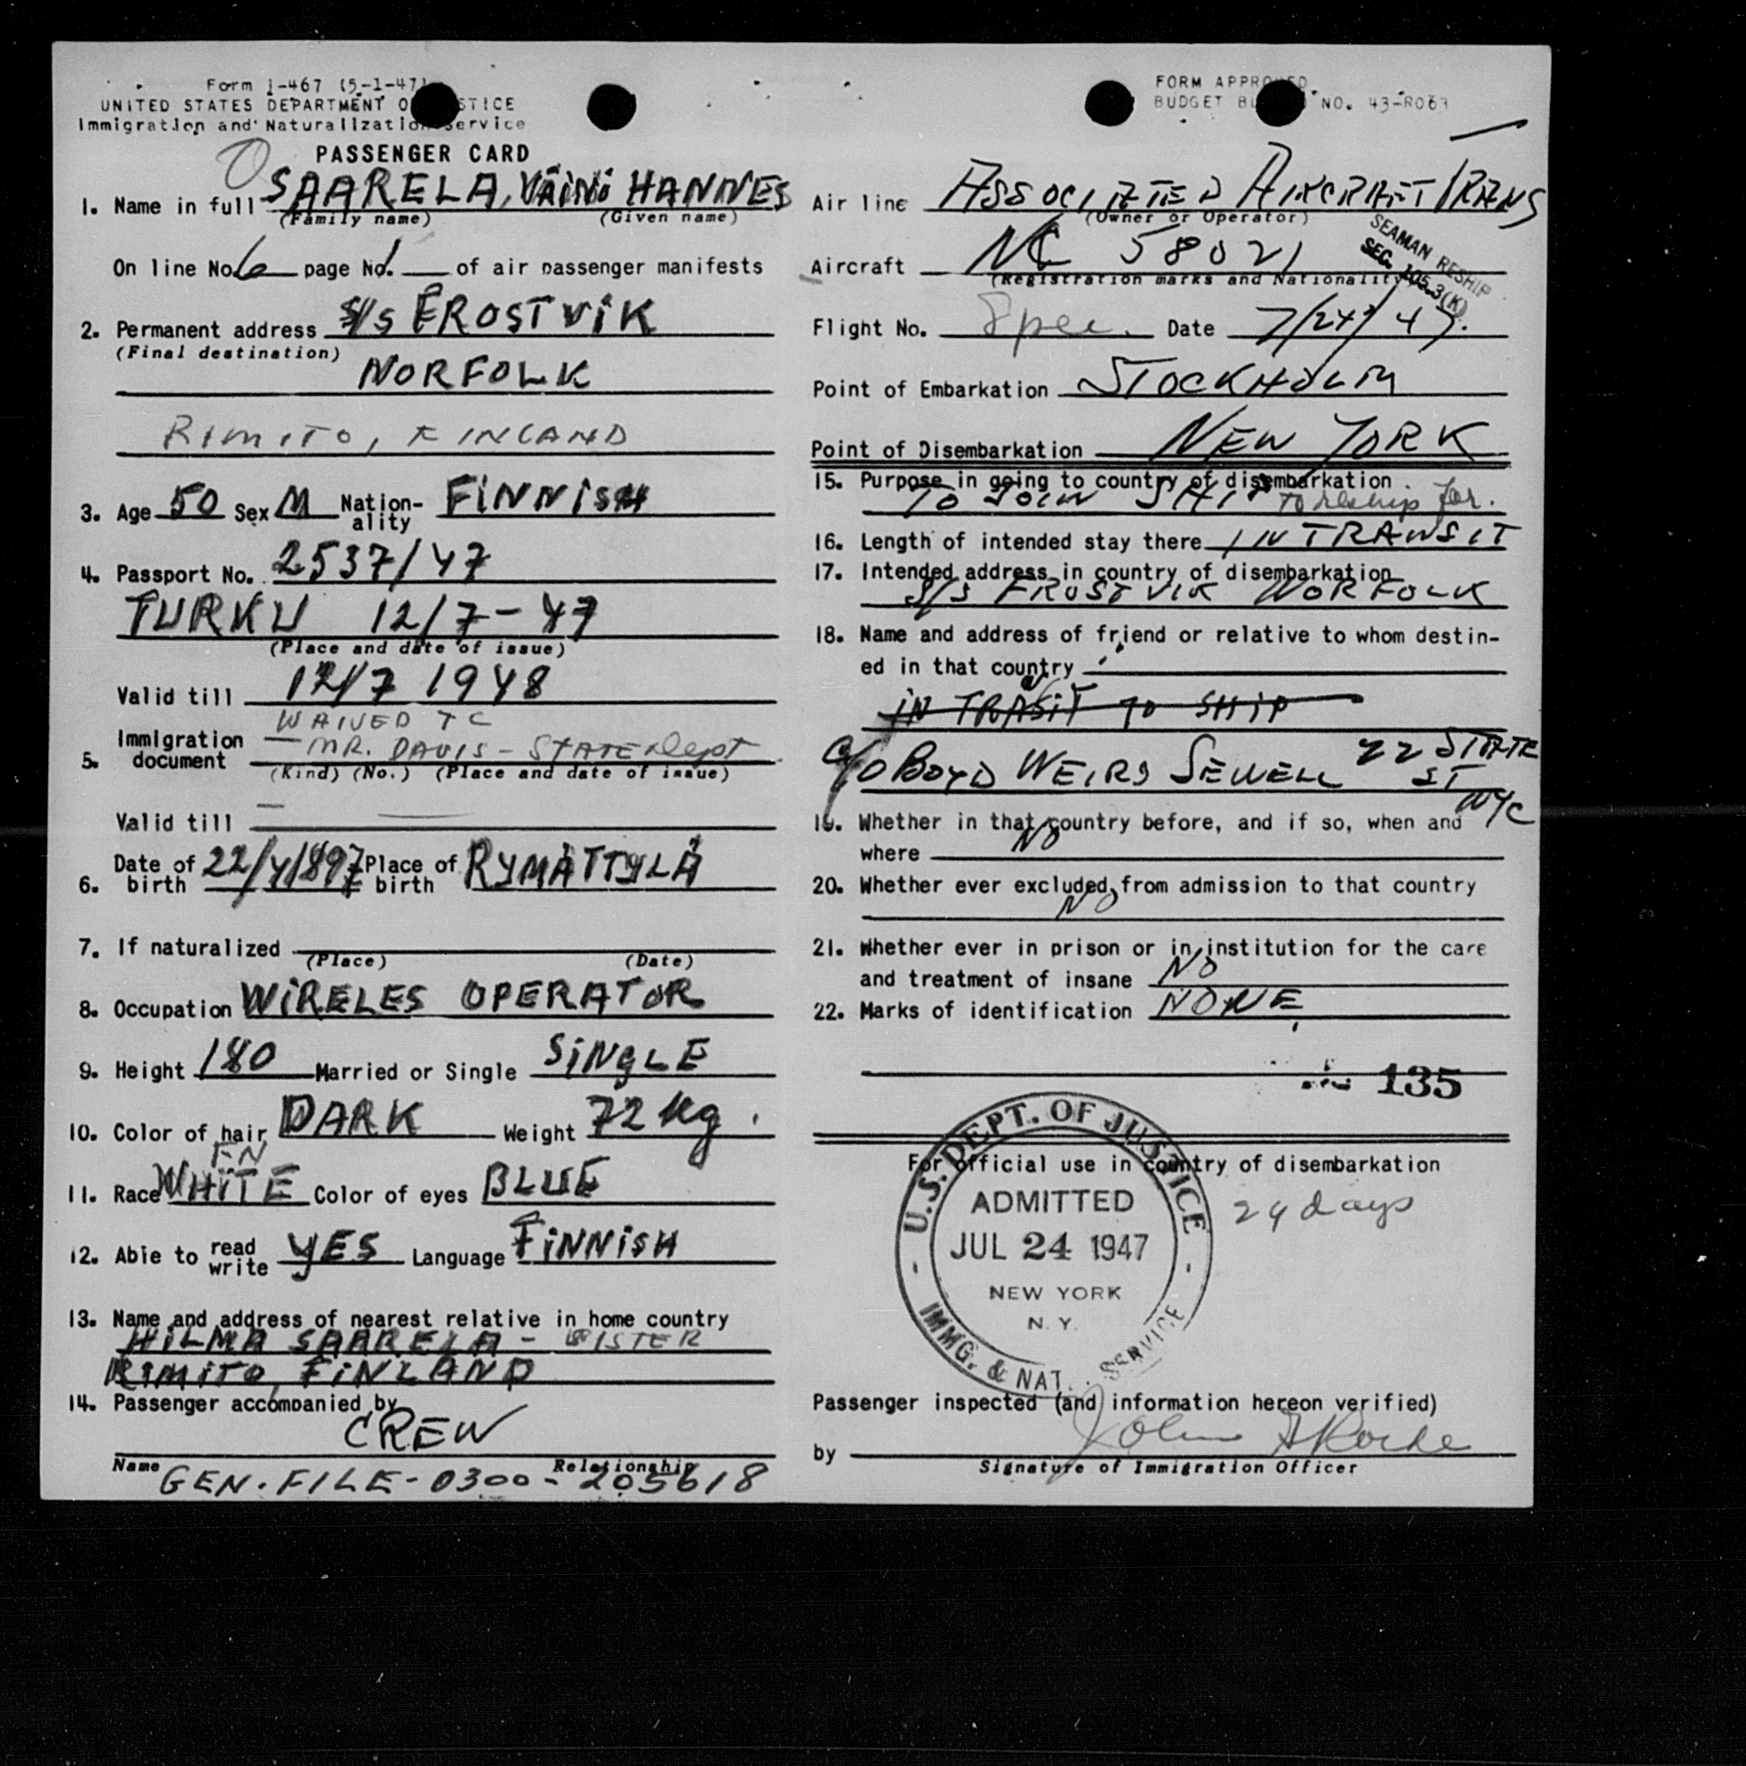 Form I-467 (5-1-47)
UNITED STATES DEPARTMENT O STICE
Immigration and Naturalizatio Service
PASSENGER CARD
1. Name in full SAARELA, VÄINÖ HANNES
(Family name) (Given name)
On line No. 6 page No. 1 of air passenger manifests
2. Permanent address S/S FROSTVIK
(Final destination)
NORFOLK
RIMITO, FINLAND
3. Age 50 Sex M Nation-ality FINNISH
4. Passport No. 2537/47
TURKU 12/7-47
(Place and date of issue)
Valid till 12/7 1948
WAIVED TC
5. Immigration document MR. DAVIS - STATE Dept
(Kind) (No.) (Place and date of issue)
Valid till —
6. Date of birth 22/4/897 Place of birth RYMÄTTYLÄ
7. If naturalized
(Place) (Date)
8. Occupation WIRELES OPERATOR
9. Height 180 Married or Single SINGLE
10. Color of hair DARK Weight 72 kg.
FN
11. Race WHITE Color of eyes BLUE
12. Able to read write YES Language FINNISH
13. Name and address of nearest relative in home country
HILMA SAARELA - SISTER
RIMITO, FINLAND
14. Passenger accompanied by
CREW
Name Relationship
GEN. FILE-0300-205618
FORM APPROVED.
BUDGET BU NO. 43-R063
Air line ASSOCIATED AIRCRAFT TRANS
(Owner or Operator)
SEAMAN RESHIP
SEC. 105.3(K)
Aircraft NC 58021
(Registration marks and Nationality)
Flight No. Spec. Date 7/24/47.
Point of Embarkation STOCKHOLM
Point of Disembarkation NEW YORK
15. Purpose in going to country of disembarkation
TO JOIN SHIP to reship for.
16. Length of intended stay there IN TRANSIT
17. Intended address in country of disembarkation
S/S FROSTVIK NORFOLK
18. Name and address of friend or relative to whom destin-
ed in that country
IN TRASIT TO SHIP
c/o BOYD WEIRS SEWELL 22 STATE
ST
NYC
19. Whether in that country before, and if so, when and
where NO
20. Whether ever excluded from admission to that country
NO
21. Whether ever in prison or in institution for the care
and treatment of insane NO
22. Marks of identification NONE
135
For official use in country of disembarkation
24 days
U.S. DEPT. OF JUSTICE
ADMITTED
JUL 24 1947
NEW YORK
N.Y.
IMMG. & NAT. SERVICE
Passenger inspected (and information hereon verified)
by John
Signature of Immigration Officer